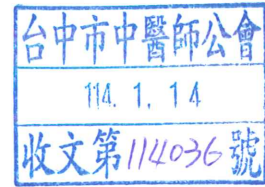 台中市中醫師公會
114. 1. 14
收文第114036號